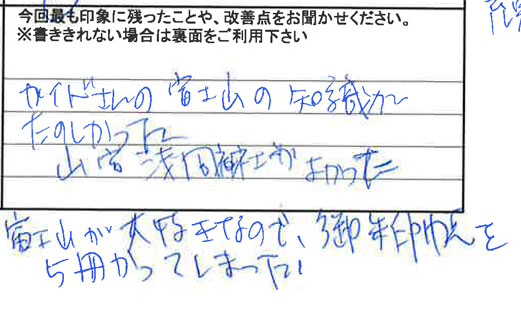 今回最も印象に残ったことや、改善点をお聞かせください。
※書ききれない場合は裏面をご利用下さい
ガイドさんの富士山の知識が
たのしかった
山宮浅間神社がよかった
富士山が大好きなので、御朱印帳を
5冊かってしまった!